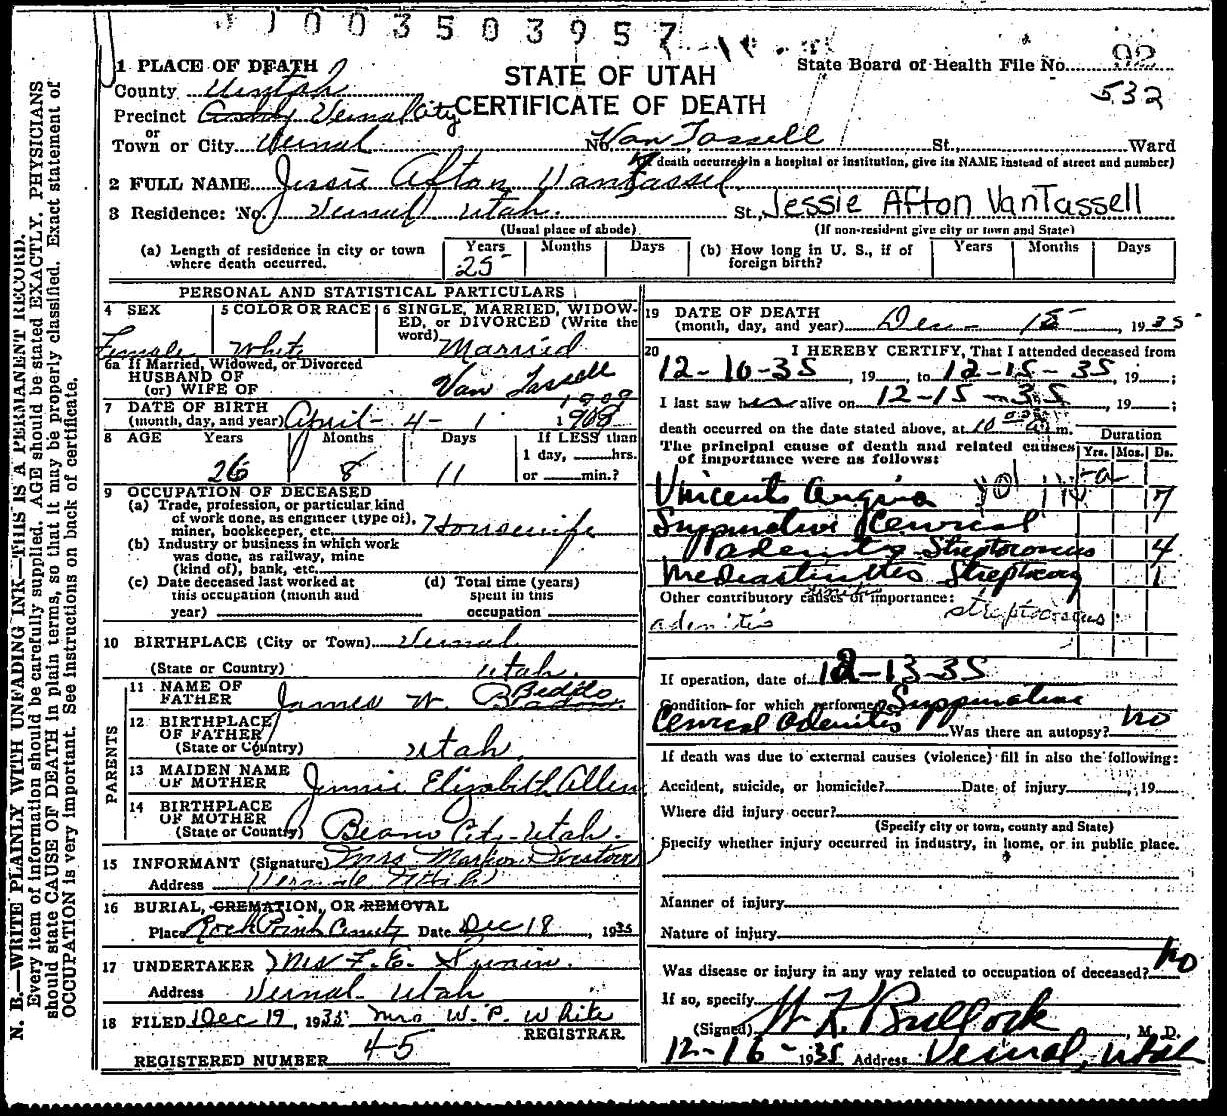 003503957
1 PLACE OF DEATH
STATE OF UTAH
CERTIFICATE OF DEATH
State Board of Health File No. 92
532
County Uintah
Precinct Ashly Vernal City
or
Town or City Vernal No. Van Tassell St., Ward
(If death occurred in a hospital or institution, give its NAME instead of street and number)
2 FULL NAME Jessie Afton VanTassel
3 Residence: No. Vernal Utah. St., Jessie Afton VanTassell
(Usual place of abode) (If non-resident give city or town and State)
(a) Length of residence in city or town where death occurred. Years 25 Months Days (b) How long in U. S., if of foreign birth? Years Months Days
PERSONAL AND STATISTICAL PARTICULARS
4 SEX Female
5 COLOR OR RACE White
6 SINGLE, MARRIED, WIDOWED, or DIVORCED (Write the word) Married
6a If Married, Widowed, or Divorced
HUSBAND OF
(or) WIFE OF Van Tassell
7 DATE OF BIRTH
(month, day, and year) April - 4 - 1908 1909
8 AGE Years 26 Months 8 Days 11 If LESS than 1 day, hrs. or min.?
9 OCCUPATION OF DECEASED
(a) Trade, profession, or particular kind
of work done, as engineer (type of),
miner, bookkeeper, etc. Housewife
(b) Industry or business in which work
was done, as railway, mine
(kind of), bank, etc.
(c) Date deceased last worked at
this occupation (month and
year)
(d) Total time (years)
spent in this
occupation
10 BIRTHPLACE (City or Town) Vernal
(State or Country) Utah.
PARENTS
11 NAME OF
FATHER James W. Beddo
12 BIRTHPLACE
OF FATHER
(State or Country) Utah.
13 MAIDEN NAME
OF MOTHER Jennie Elizabeth Allen
14 BIRTHPLACE
OF MOTHER
(State or Country) City - Utah.
15 INFORMANT (Signature) Mrs
Address Vernal Utah
16 BURIAL, CREMATION, OR REMOVAL
Place Rock Point Date Dec 18, 1935
17 UNDERTAKER Mrs F. E. Swain.
Address Vernal Utah
18 FILED Dec 19, 1935 Mrs W. P. White
REGISTRAR.
REGISTERED NUMBER 45
19 DATE OF DEATH
(month, day, and year) Dec - 15, 1935
20 I HEREBY CERTIFY, That I attended deceased from
12-10-35, 19 to 12-15-35, 19 ;
I last saw her alive on 12-15-35, 19 ;
death occurred on the date stated above, at 10 a.m.
The principal cause of death and related causes
of importance were as follows:
Duration
Yrs. Mos. Ds.
Vincents angina 7
Suppurative Cervical
adenitis Streptococcus 4
Mediastinitis 1
Other contributory causes of importance:
streptococcus
adenitis
If operation, date of 12-13-35
Condition for which performed Suppurative
Cervical Adenitis Was there an autopsy? no
If death was due to external causes (violence) fill in also the following:
Accident, suicide, or homicide? Date of injury , 19
Where did injury occur?
(Specify city or town, county and State)
Specify whether injury occurred in industry, in home, or in public place.
Manner of injury
Nature of injury
Was disease or injury in any way related to occupation of deceased? no
If so, specify
(Signed) W K Bullock, M. D.
12-16-1935 Address Vernal, Utah
N. B.—WRITE PLAINLY WITH UNFADING INK—THIS IS A PERMANENT RECORD.
Every item of information should be carefully supplied. AGE should be stated EXACTLY. PHYSICIANS
should state CAUSE OF DEATH in plain terms, so that it may be properly classified. Exact statement of
OCCUPATION is very important. See instructions on back of certificate.